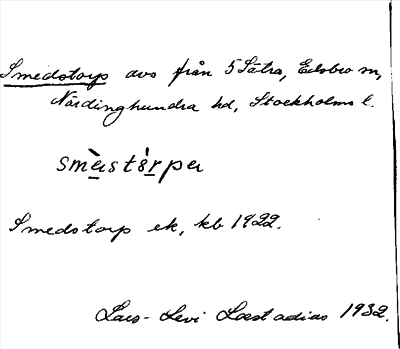 Smedstorp avs från 5 Sätra, Edsbro sn,
Närdinghundra hd, Stockholms l.
Smedstorp ek, kb 1922.
Lars-Levi Læstadius 1932.